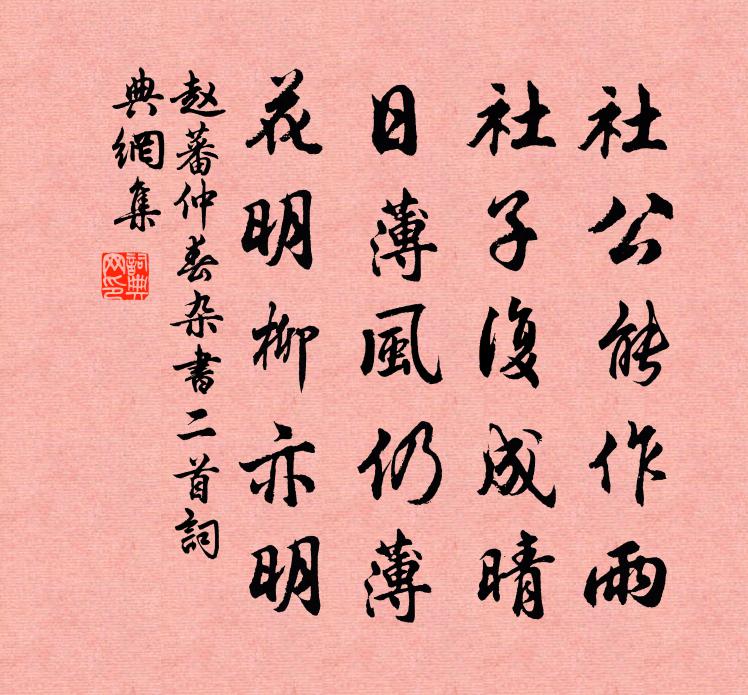 社公能作雨
社子復成晴
日薄風仍薄
花明柳亦明
赵蕃仲春杂書二首詞
典網集
詞典
网印